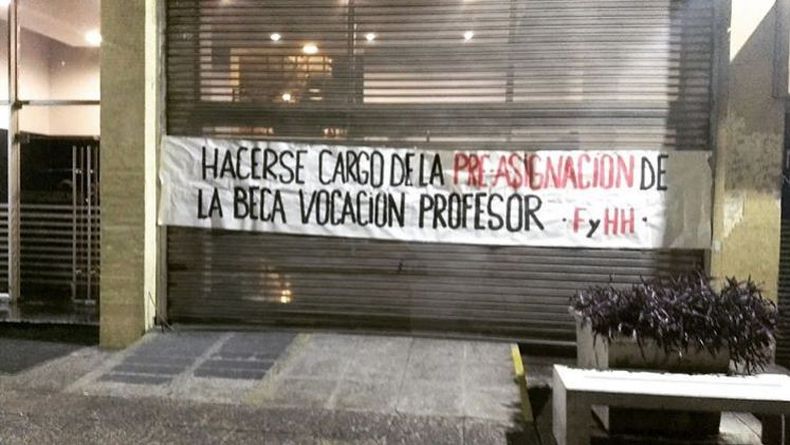 HACERSE CARGO DE LA PRE-ASIGNACION DE
LA BECA VOCACION PROFESOR · F y HH ·